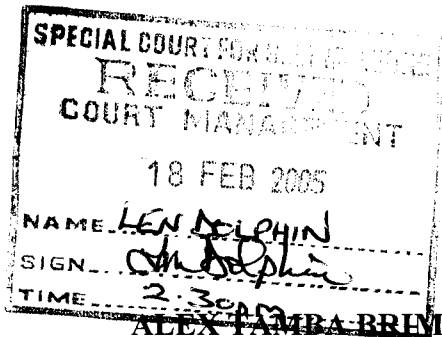 SPECIAL COURT FOR
RECEIVED
COURT MANAGEMENT
18 FEB 2005
NAME LEN DOLPHIN
SIGN Len Dolphin
TIME 2.30PM
ALEX TAMBA BRIM